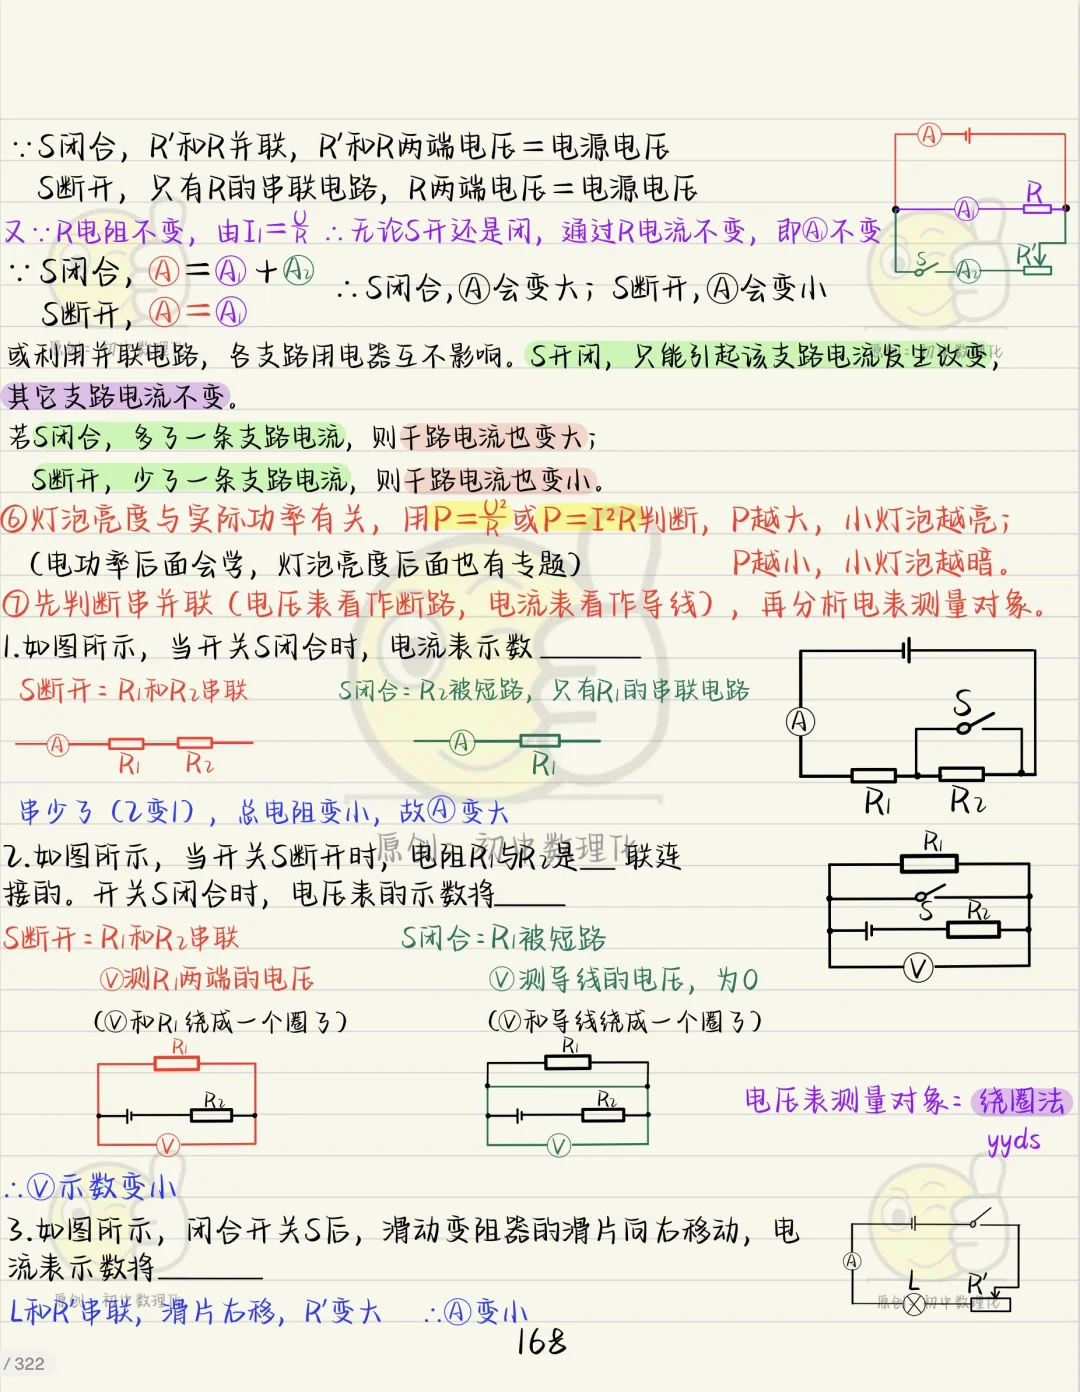 ∵S闭合，R′和R并联，R′和R两端电压＝电源电压
S断开，只有R的串联电路，R两端电压＝电源电压
又∵R电阻不变，由I₁＝U/R ∴无论S开还是闭，通过R电流不变，即Ⓐ不变
∵S闭合，Ⓐ＝Ⓐ₁＋Ⓐ₂
S断开，Ⓐ＝Ⓐ₁
∴S闭合，Ⓐ会变大；S断开，Ⓐ会变小
A
A₁
R
S
A₂
R′
或利用并联电路，各支路用电器互不影响。S开闭，只能引起该支路电流发生改变，
其它支路电流不变。
若S闭合，多了一条支路电流，则干路电流也变大；
S断开，少了一条支路电流，则干路电流也变小。
⑥灯泡亮度与实际功率有关，用P＝U²/R或P＝I²R判断，P越大，小灯泡越亮；
（电功率后面会学，灯泡亮度后面也有专题） P越小，小灯泡越暗。
⑦先判断串并联（电压表看作断路，电流表看作导线），再分析电表测量对象。
1.如图所示，当开关S闭合时，电流表示数______
S断开：R₁和R₂串联 S闭合：R₂被短路，只有R₁的串联电路
A R₁ R₂
A R₁
A
S
R₁ R₂
串少了（2变1），总电阻变小，故Ⓐ变大
原创：初中数理化
2.如图所示，当开关S断开时，电阻R₁与R₂是__联连
接的。开关S闭合时，电压表的示数将____
R₁
S
R₂
V
S断开：R₁和R₂串联 S闭合：R₁被短路
Ⓥ测R₁两端的电压 Ⓥ测导线的电压，为0
（Ⓥ和R₁绕成一个圈了） （Ⓥ和导线绕成一个圈了）
R₁ R₁
R₂ R₂
V V
电压表测量对象：绕圈法
yyds
∴Ⓥ示数变小
3.如图所示，闭合开关S后，滑动变阻器的滑片向右移动，电
流表示数将______
A
L R′
原创：初中数理化
L和R′串联，滑片右移，R′变大 ∴Ⓐ变小
168
/ 322